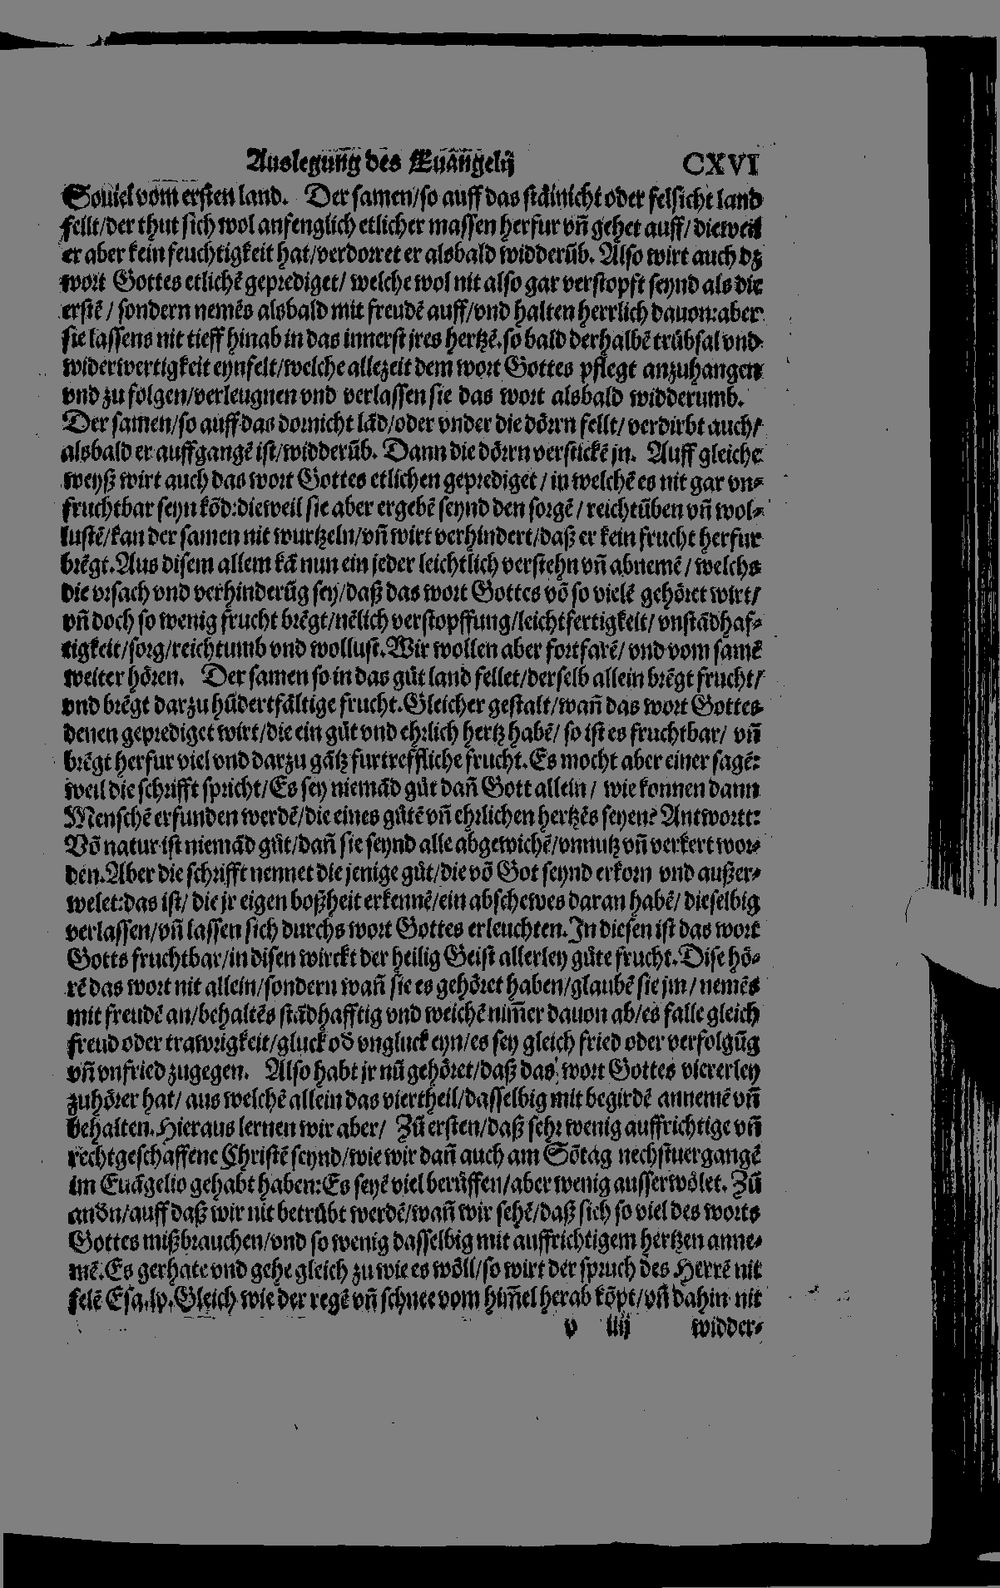 Auslegung des Euãngelij CXVI
Souiel vom ersten land. Der samen/so auff das stäinicht oder felsicht land
fellt/der thut sich wol anfenglich etlicher massen herfur vñ gehet auff/dieweil
er aber kein feuchtigkeit hat/verdorret er alsbald widderũb. Also wirt auch dz
wort Gottes etlichẽ geprediget/ welche wol nit also gar verstopft seynd als die
erstẽ/ sondern nemẽs alsbald mit freudẽ auff/vnd halten herrlich dauon:aber
sie lassens nit tieff hinab in das innerst jres hertzẽ.so bald derhalbẽ trübsal vnd
widerwertigkeit eynfelt/welche allezeit dem wort Gottes pflegt anzuhangen
vnd zu folgen/verleugnen vnd verlassen sie das wort alsbald widderumb.
Der samen/so auff das dornicht lãd/oder vnder die dörrn fellt/verdirbt auch/
alsbald er auffgangẽ ist/widderũb. Dann die dörrn verstickẽ jn. Auff gleiche
weyß wirt auch das wort Gottes etlichen geprediget/in welchẽ es nit gar vn-
fruchtbar seyn köd:dieweil sie aber ergebẽ seynd den sorgẽ/reichtũben vñ wol-
lustẽ/kan der samen nit wurtzeln/vñ wirt verhindert/daß er kein frucht herfur
brẽgt.Aus disem allem kã nun ein jeder leichtlich verstehn vñ abnemẽ/welchs
die vrsach vnd verhinderũg sey/daß das wort Gottes võ so vielẽ gehöret wirt/
vñ doch so wenig frucht brẽgt/nẽlich verstopffung/leichtfertigkeit/vnstãdhaf-
tigkeit/sorg/reichtumb vnd wollust.Wir wollen aber fortfarẽ/vnd vom samẽ
weiter hören. Der samen so in das gůt land fellet/derselb allein brẽgt frucht/
vnd brẽgt darzu hũdertfältige frucht.Gleicher gestalt/wañ das wort Gottes
denen geprediget wirt/die ein gůt vnd ehrlich hertz habẽ/so ist es fruchtbar/ vñ
brẽgt herfur viel vnd darzu gãtz furtreffliche frucht.Es mocht aber einer sagẽ:
weil die schrifft spricht/Es sey niemãd gůt dañ Gott allein/ wie konnen dann
Menschẽ erfunden werdẽ/die eines gůtẽ vñ ehrlichen hertzẽs seyen? Antwortt:
Võ natur ist niemãd gůt/dañ sie seynd alle abgewichẽ/vnnutz vñ verkert wor-
den.Aber die schrifft nennet die jenige gůt/die võ Got seynd erkorn vnd außer-
welet:das ist/die jr eigen boßheit erkennẽ/ein abschewes daran habẽ/dieselbig
verlassen/vñ lassen sich durchs wort Gottes erleuchten.In diesen ist das wort
Gotts fruchtbar/in disen wirckt der heilig Geist allerley gůte frucht.Dise hö-
rẽ das wort nit allein/sondern wañ sie es gehöret haben/glaubẽ sie jm/nemẽs
mit freudẽ an/behaltẽs stãdhafftig vnd weichẽ nim̃er dauon ab/es falle gleich
freud oder trawrigkeit/gluck oď vngluck eyn/es sey gleich fried oder verfolgũg
vñ vnfried zugegen. Also habt jr nũ gehöret/daß das wort Gottes viererley
zuhörer hat/aus welchẽ allein das viertheil/dasselbig mit begirdẽ annemẽ vñ
behalten.Hieraus lernen wir aber/ Zũ ersten/daß sehr wenig auffrichtige vñ
rechtgeschaffene Christẽ seynd/wie wir dañ auch am Sõtag nechstuergangẽ
im Euãgelio gehabt haben:Es seyẽ viel berüffen/aber wenig ausserwölet. Zũ
anďn/auff daß wir nit betrübt werdẽ/wañ wir sehẽ/daß sich so viel des worts
Gottes mißbrauchen/vnd so wenig dasselbig mit auffrichtigem hertzen anne-
mẽ.Es gerhate vnd gehe gleich zu wie es wöll/so wirt der spruch des Herrẽ nit
felẽ Esa.lv.Gleich wie der regẽ vñ schnee vom him̃el herab kõpt/vñ dahin nit
v iiij widder-